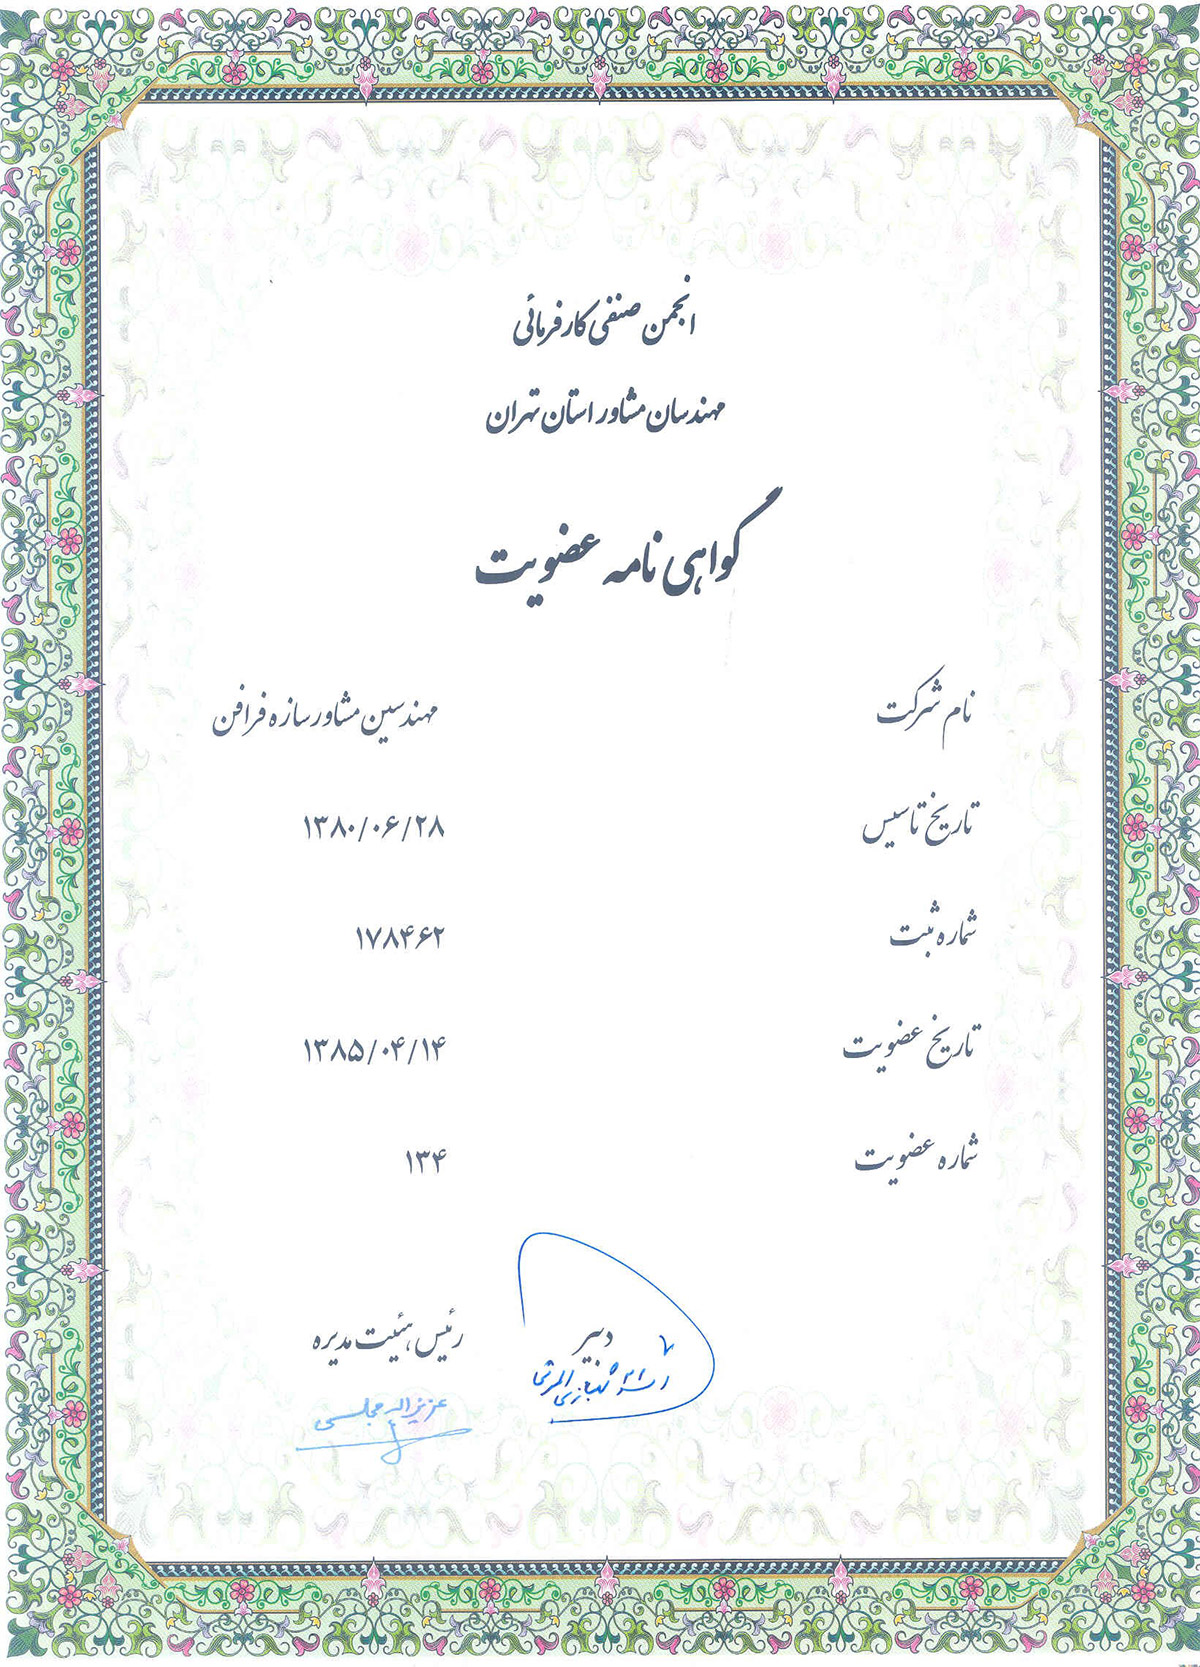 انجمن صنفی کارفرمائی
مهندسان مشاور استان تهران
گواهی نامه عضویت
نام شرکت مهندسین مشاور سازه فرافن
تاریخ تاسیس ۱۳۸۰/۰۶/۲۸
شماره ثبت ۱۷۸۴۶۲
تاریخ عضویت ۱۳۸۵/۰۴/۱۴
شماره عضویت ۱۳۴
دبیر رئیس هیئت مدیره